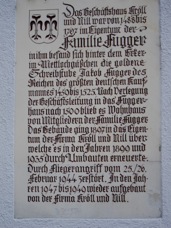 Das Geschäftshaus Kröll
und Nill war von 1488 bis
1797 in Eigentum der
Familie Fugger
in ihm befand sich hinter dem Erker
im Mettlochgäßchen die goldene
Schreibstube Jakob Fugger des
Reichen des größten deutschen Kauf-
mannes 1459 bis 1525. Nach Verlegung
der Geschäftsleitung in das Fugger-
haus nach 1500 blieb es Wohnhaus
von Mitgliedern der Familie Fugger
Das Gebäude ging 1897 in das Eigen-
tum der Firma Kröll und Nill über
welche es in den Jahren 1899 und
1935 durch Umbauten erneuerte.
Durch Fliegerangriff vom 25/26.
Februar 1944 zerstört. In den Jah-
ren 1947 bis 1949 wieder aufgebaut
von der Firma Kröll und Nill.